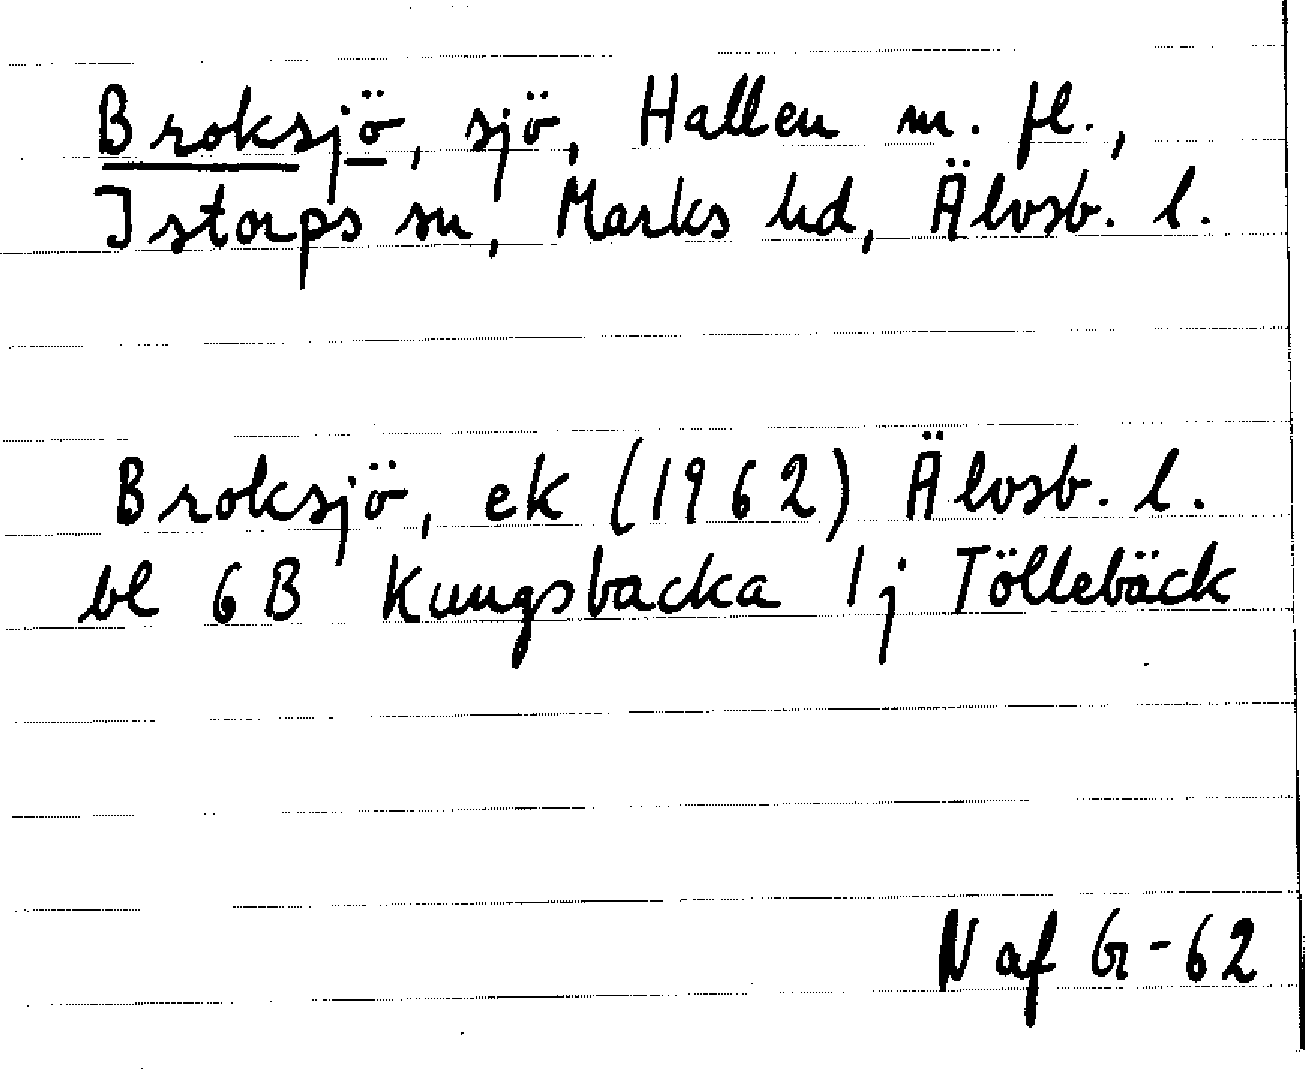 Broksjö, sjö, Hallen m. fl.,
Istorps sn, Marks hd, Älvsb. l.
Broksjö, ek (1962) Älvsb. l.
bl 6B Kungsbacka 1j Töllebäck
N af G-62